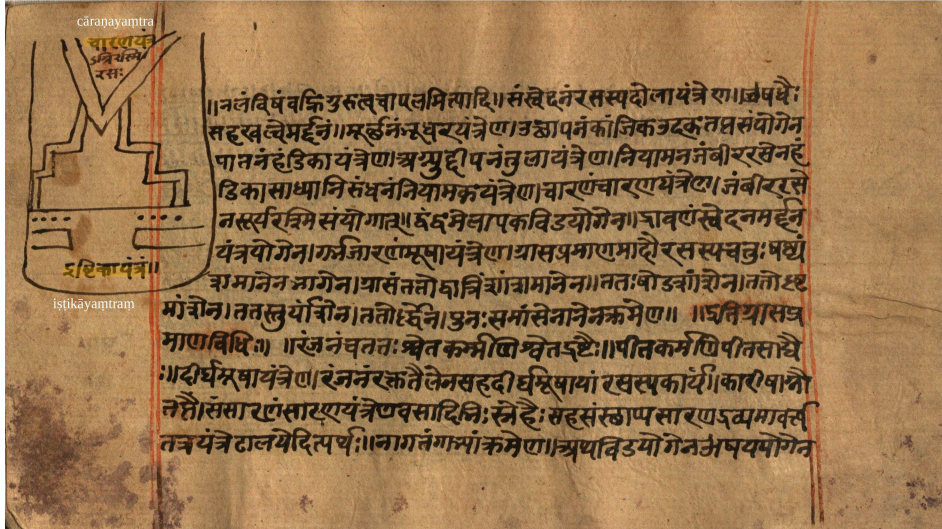 cāraṇayaṃtra
चारणयंत्र
रसः
॥नलंविषंवह्निगुरुत्वचापलमित्यादि॥संस्वेदनंरसस्यदोलायंत्रेण॥औषधैः
सहखल्वेमर्द्दनं॥मूर्छनंभूधरयंत्रेण।उछापनंकांजिकउदकतप्तसंयोगेन
पातनंहंडिकायंत्रेण।अग्न्युद्दीपनंतुलायंत्रेण।नियामनजंबीररसेनहं
डिकासाध्यानिसंधनंनियामकयंत्रेण।चारणंचारणयंत्रेण।जंबीररसे
नसूर्यरश्मिसंयोगात्॥द्वंद्वमेलापकविडयोगेन॥द्रावणंस्वेदनमर्द्दन
यंत्रयोगेन।गर्भजारणंमूषायंत्रेण।ग्रासप्रमाणमादौरसस्यचतुःषष्ट्यं
शमानेनभागेन।ग्रासंततोद्वात्रिंशांशमानेन॥ततःषोडशांशेन।ततोष्ट
मांशेन।ततस्तुर्यांशेन।ततोर्द्धेन।पुनःसमांसेनानेनक्रमेण॥ ॥इतिग्रासप्र
माणविधिः॥ ॥रंजनंचततःश्वेतकर्मणिश्वेतइष्टैः॥पीतकर्मणिपीतसाद्यै
ः॥दीर्घमूषायंत्रेण।रंजनंरक्ततैलेनसहदीर्घमूषायांरसस्यकार्यं।कारीषाग्नौ
तप्तै।संसारणंसारणयंत्रेणवसादिभिःस्नेहैःसहसंस्छाप्यसारणद्रव्यमावर्त्य
तत्रयंत्रेढालयेदित्यर्थः॥नागतंगाभ्यांक्रमेण॥अथविडयोगेनऔषधयोगेन
इष्टिकायंत्रं॥
iṣṭikāyaṃtraṃ